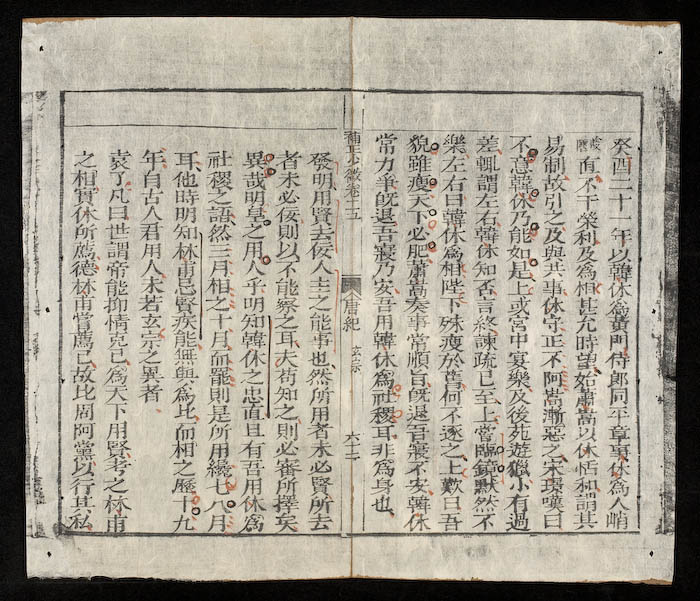 癸酉二十一年以韓休爲黃門侍郎同平章事休爲人峭
直不干榮利及爲相甚允時望始蕭嵩以休恬和謂其
易制故引之及與共事休守正不阿嵩漸惡之宋璟嘆曰
不意韓休乃能如是上或宮中宴樂及後苑遊獵小有過
差輒謂左右韓休知否言終諫疏已至上嘗臨鏡默然不
樂左右曰韓休爲相陛下殊瘦於舊何不逐之上歎曰吾
貌雖瘦天下必肥蕭嵩奏事常順旨旣退吾寢不安韓休
常力爭旣退吾寢乃安吾用韓休爲社稷耳非爲身也
卷十五
唐紀
玄宗
六十七
發明用賢去佞人主之能事也然所用者未必賢所去
者未必佞則以不能察之耳夫苟知之則必審所擇矣
異哉明皇之用人乎明知韓休之忠直且有吾用休爲
社稷之語然三月相之十月而罷則是所用纔七八月
耳他時明知林甫忌賢疾能無與爲比而相之歷十九
年自古人君用人未若玄宗之異者
袁了凡曰世謂帝能抑情克己爲天下用賢考之林甫
之相實休所薦德林甫嘗薦己故比周阿黨以行其私